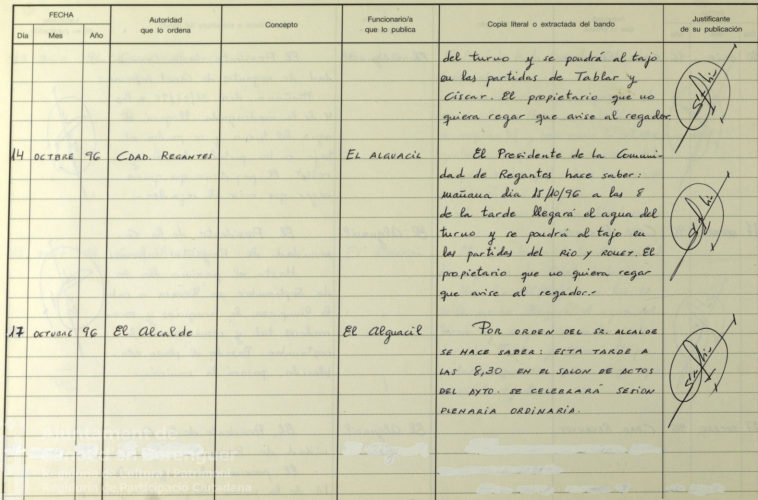 FECHA
Día Mes Año
Autoridad
que lo ordena
Concepto
Funcionario/a
que lo publica
Copia literal o extractada del bando
Justificante
de su publicación
del turno y se pondrá al tajo
en las partidas de Tablar y
Ciscar. El propietario que no
quiera regar que avise al regador.
14 OCTBRE 96 CDAD. REGANTES EL ALGUACIL El Presidente de la Comuni-
dad de Regantes hace saber:
mañana dia 15/10/96 a las 8
de la tarde llegará el agua del
turno y se pondrá al tajo en
las partidas del RIO y ROUET. El
propietario que no quiera regar
que avise al regador.-
17 OCTUBRE 96 El Alcalde El Alguacil POR ORDEN DEL SR. ALCALDE
SE HACE SABER: ESTA TARDE A
LAS 8,30 EN EL SALON DE ACTOS
DEL AYTO. SE CELEBRARÁ SESION
PLENARIA ORDINARIA.